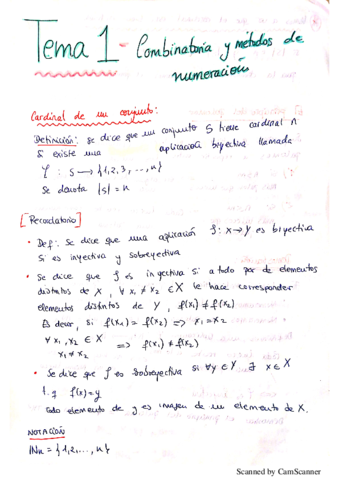 Tema 1 - Combinatoria y métodos de
numeración
Cardinal de un conjunto:
Definición: se dice que un conjunto S tiene cardinal n
si existe una aplicación biyectiva llamada
φ : S → {1,2,3,...,n}
se denota |S| = n
[Recordatorio]
• Def: Se dice que una aplicación f: X → Y es biyectiva
si es inyectiva y sobreyectiva
• Se dice que f es inyectiva si a todo par de elementos
distintos de X, ∀ x₁ ≠ x₂ ∈ X le hace corresponder
elementos distintos de Y, f(x₁) ≠ f(x₂)
Es decir, si f(x₁) = f(x₂) ⇒ x₁ = x₂
∀ x₁, x₂ ∈ X ⇒ f(x₁) ≠ f(x₂)
x₁ ≠ x₂
• Se dice que f es sobreyectiva si ∀y ∈ Y ∃ x ∈ X
t.q f(x) = y
cada elemento de y es imagen de un elemento de X.
NOTACIÓN
ℕn = {1,2,...,n}
Scanned by CamScanner